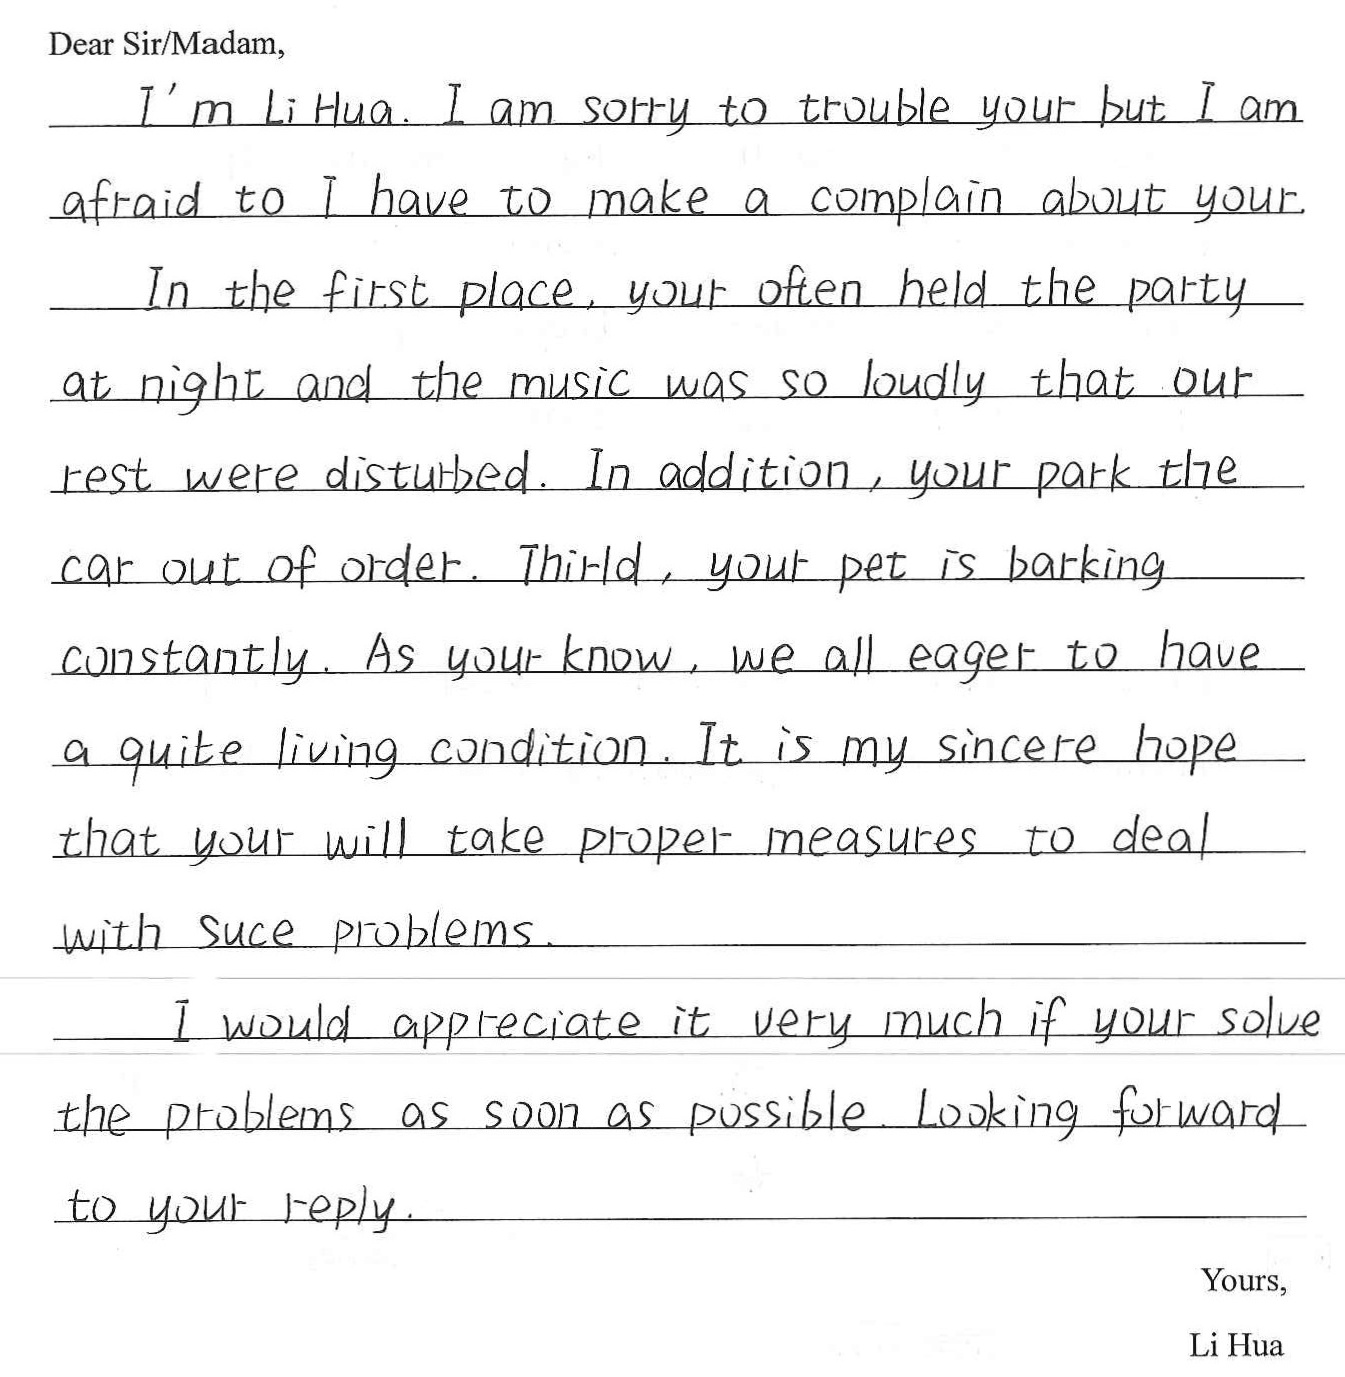 Dear Sir/Madam,
I'm Li Hua. I am sorry to trouble your but I am
afraid to I have to make a complain about your.
In the first place, your often held the party
at night and the music was so loudly that our
rest were disturbed. In addition, your park the
car out of order. Thirld, your pet is barking
constantly. As your know, we all eager to have
a quite living condition. It is my sincere hope
that your will take proper measures to deal
with suce problems.
I would appreciate it very much if your solve
the problems as soon as possible. Looking forward
to your reply.
Yours,
Li Hua